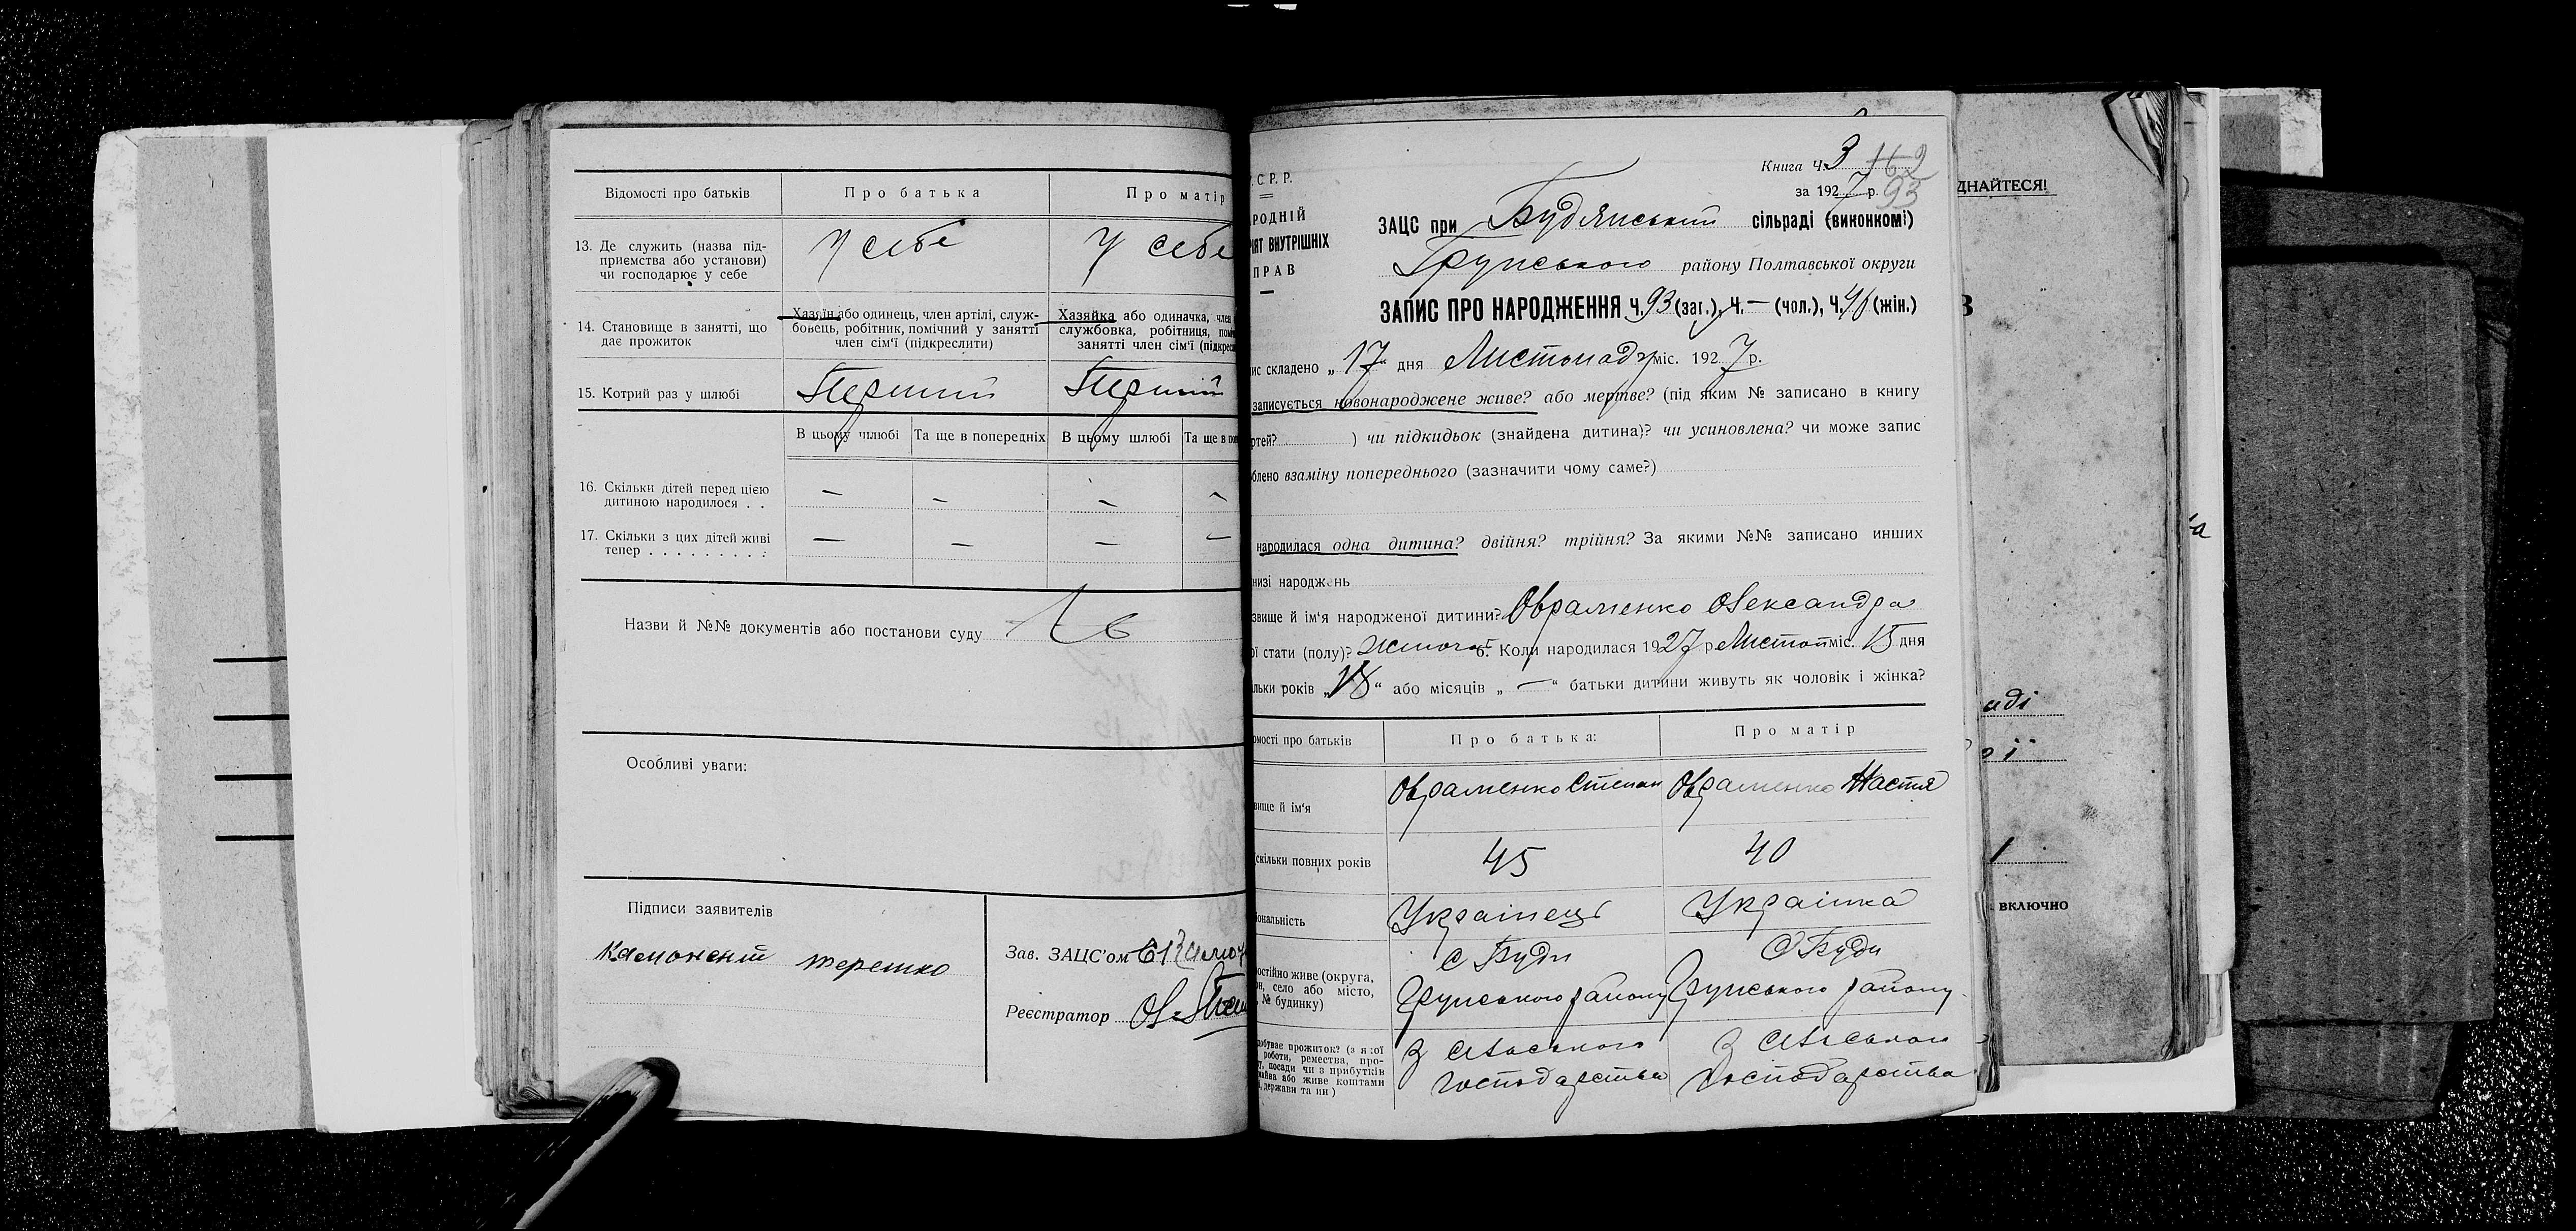 Відомості про батьків
Про батька
Про матір
13. Де служить (назва під-
приємства або установи)
чи господарює у себе
У себе
У себе
14. Становище в занятті, що
дає прожиток
Хазяїн або одинець, член артілі, служ-
бовець, робітник, помічний у занятті
член сім'ї (підкреслити)
Хазяйка або одиначка, член
службовка, робітниця,
занятті член сім'ї
15. Котрий раз у шлюбі
Перший
Перший
В цьому шлюбі
Та ще в попередніх
В цьому шлюбі
Та ще в
16. Скільки дітей перед цією
дитиною народилося . .
— — — —
17. Скільки з цих дітей живі
тепер . . . . . . . . . .
— — — —
Назви й №№ документів або постанови суду
Особливі уваги:
Підписи заявителів
терешко
Зав. ЗАЦС'ом
Реєстратор
Книга Ч. 3
162
за 1927 р.
93
С. Р. Р.
РОДНІЙ
ІЯТ ВНУТРІШНІХ
ПРАВ
ЗАЦС при Будянський сільраді (виконкомі)
Грунського району Полтавської округи
ЗАПИС ПРО НАРОДЖЕННЯ Ч. 93 (заг.), Ч. — (чол.), Ч. 46 (жін.)
ис складено „17" дня Листопаду міс. 1927 р.
записується новонароджене живе? або мертве? (під яким № записано в книгу
ртей? ) чи підкидьок (знайдена дитина)? чи усиновлена? чи може запис
блено взаміну попереднього (зазначити чому саме?)
народилася одна дитина? двійня? трійня? За якими №№ записано инших
низі народжень
звище й ім'я народженої дитини? Овраменко Олександра
ої стати (полу)? жіночої 6. Коли народилася 1927 р Листоп міс. 15 дня
льки років „18" або місяців „—" батьки дитини живуть як чоловік і жінка?
омості про батьків
Про батька:
Про матір
вище й ім'я
Овраменко Степан
Овраменко Настя
скільки повних років
45
40
іональність
Українець
Українка
остійно живе (округа,
он, село або місто,
№ будинку)
с Буди
Грунського району
с Буди
Грунського району
обуває прожиток? (з якої
роботи, ремества, про-
у, посади чи з прибутків
майна або живе коштами
, держави та ин)
З сільського
господарства
З сільського
господарства
ДНАЙТЕСЯ!
В
аді
ої
1
включно